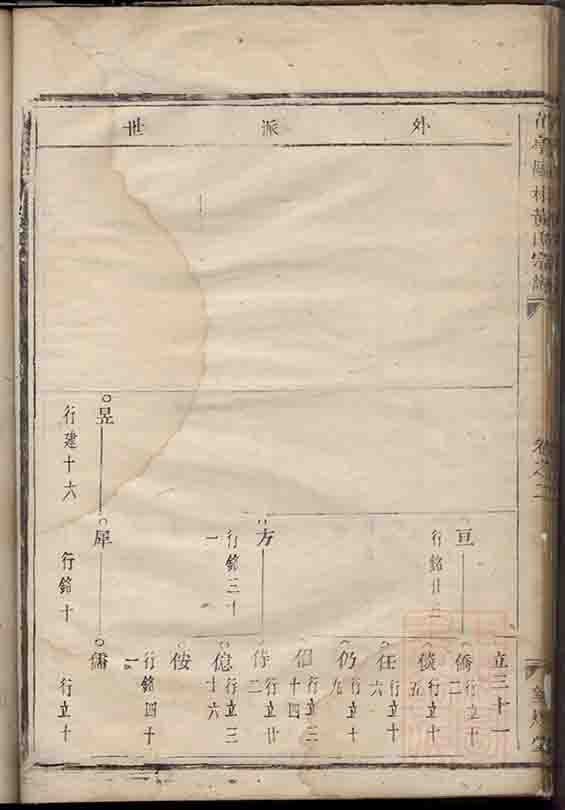 外派世
立三十一
亘
行銘廿
僑
行立十二
倓
行立十五
任
行立十六
仍
行立十九
行立三十四
方
行銘三十一
行立廿二
億
行立三十六
侒
昱
行建十六
犀
行銘十
行銘四十一
儒
行立十
林黃氏宗譜
卷之二